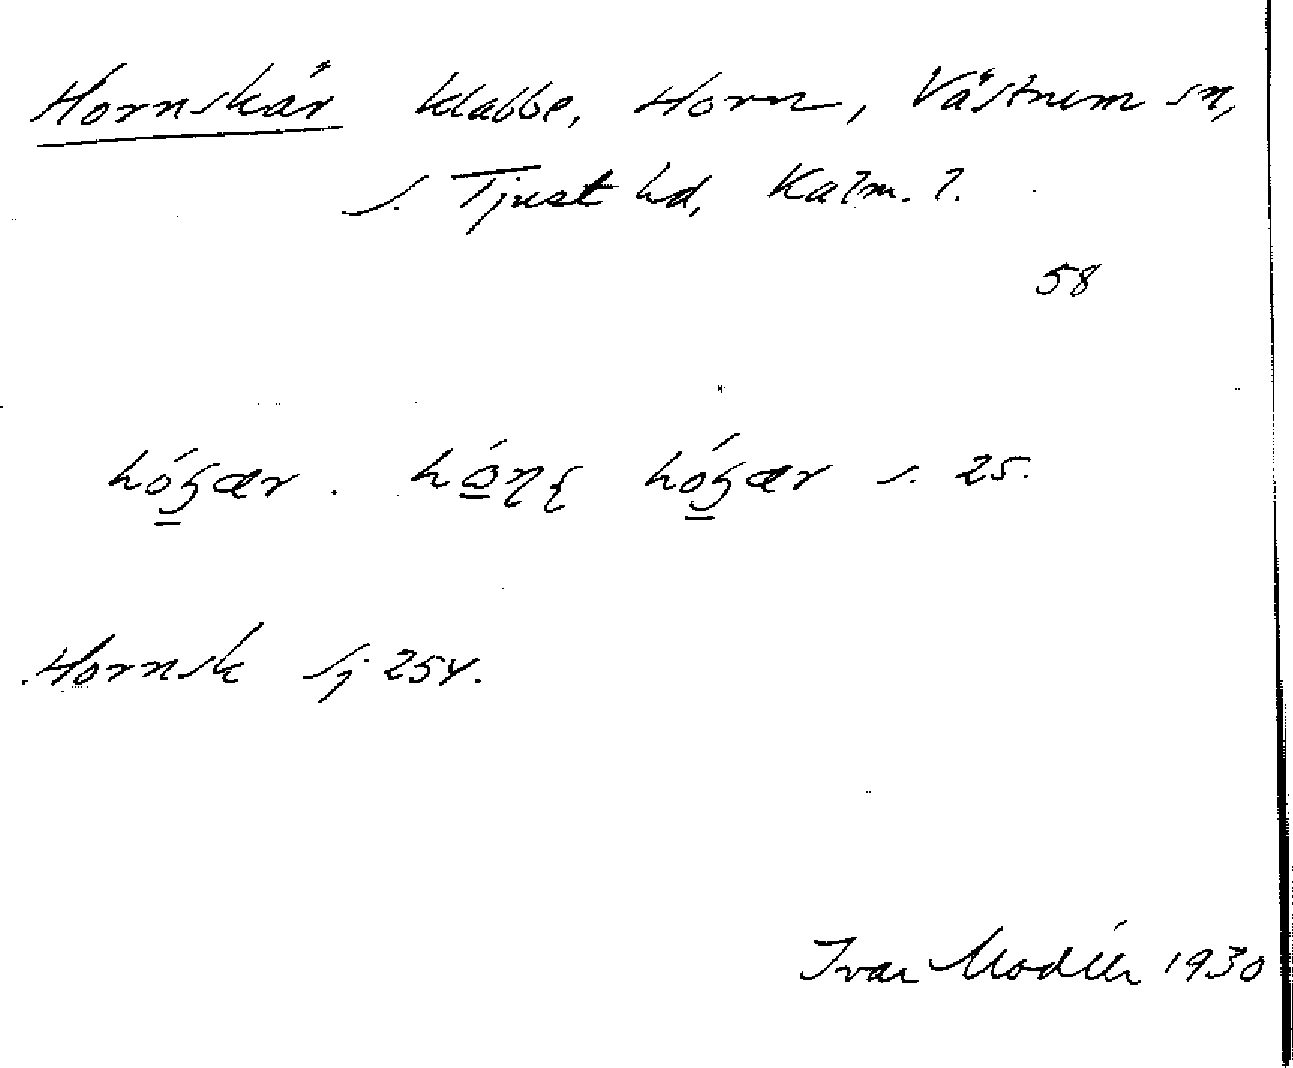 Hornskär klabbe, Horn, Västrum sn,
s. Tjust hd, Kalm. l.
58
s. 25.
Hornsk sj 254.
Ivar Modéer 1930